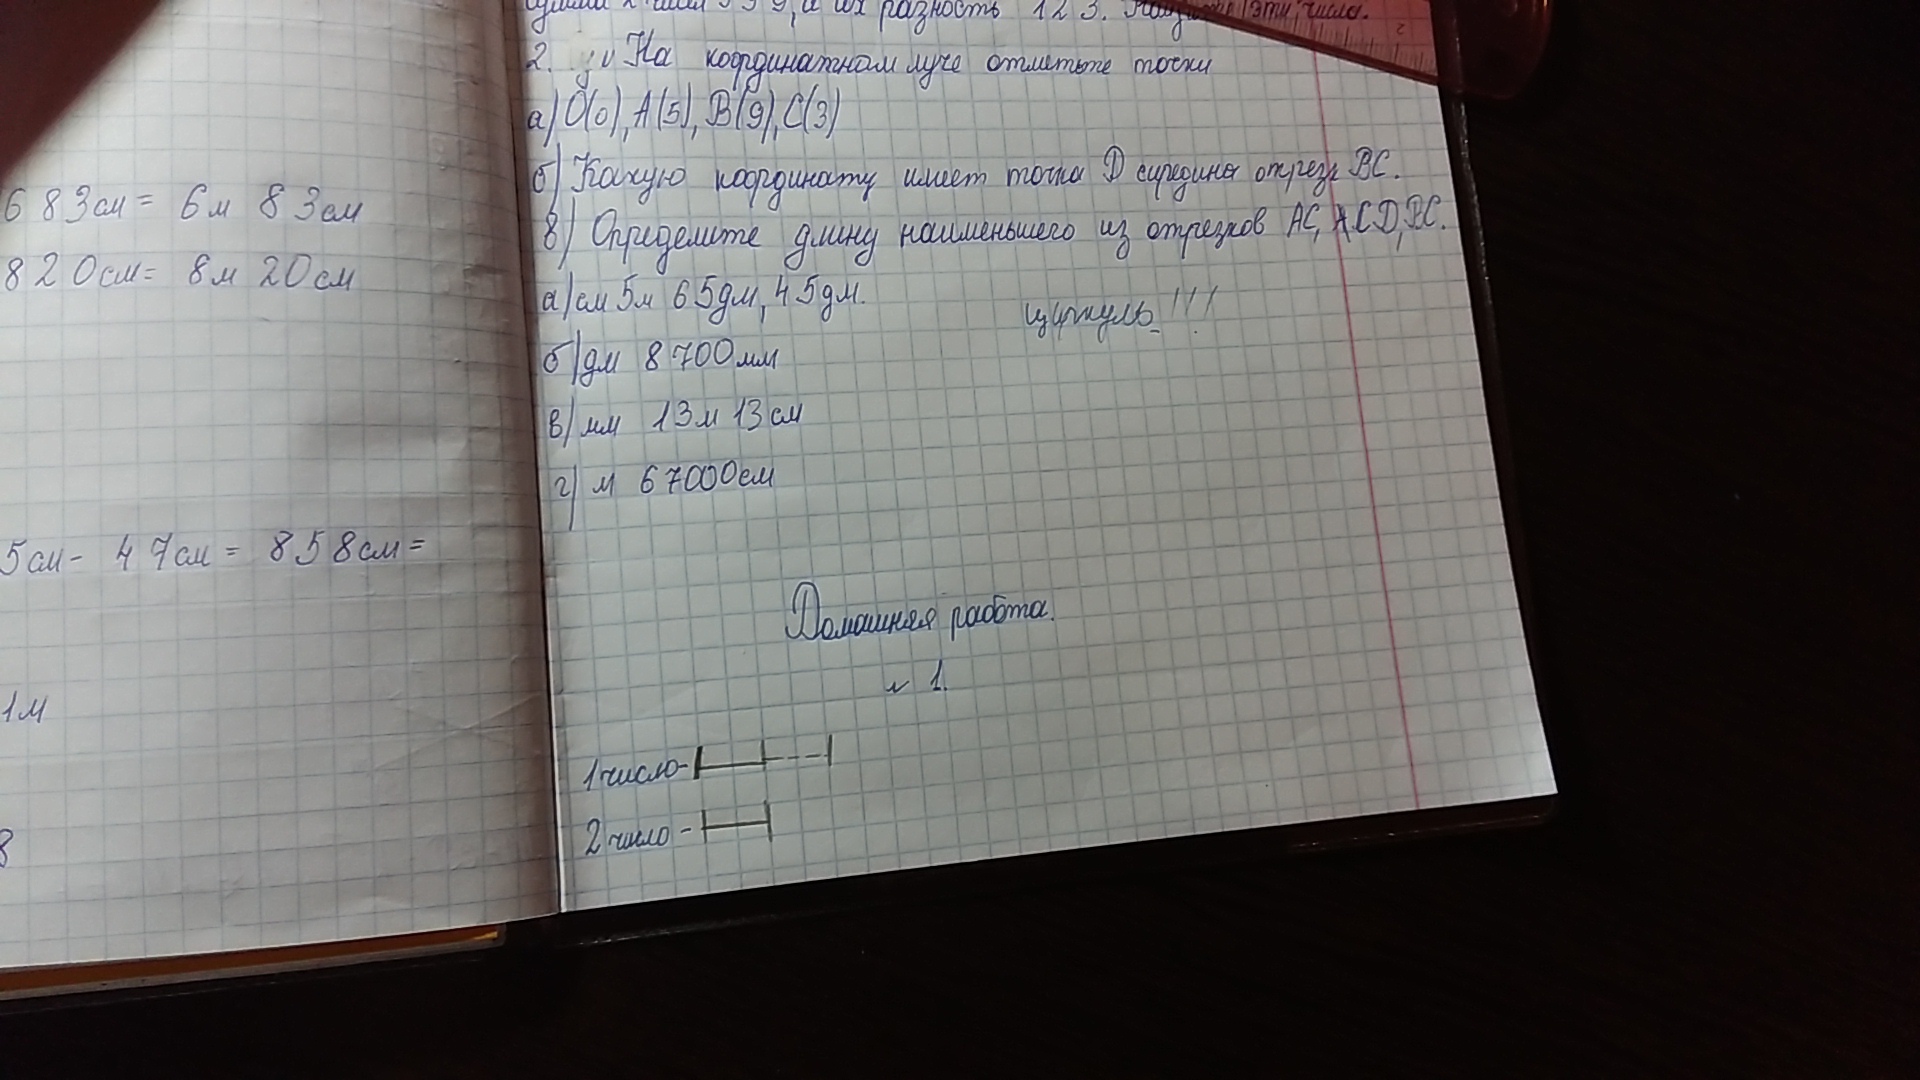 683см = 6м 83см
820см = 8м 20см
5см - 47см = 858см =
1м
8
сумма 2 чисел а их разность 123. эти числа.
2. На координатном луче отметьте точки
а) О(0), А(5), В(9), С(3)
б) Какую координату имеет точка D середина отрезк ВС.
в) Определите длину наименьшего из отрезков АС, СD, ВС.
а) см 5м 65дм, 45дм.
циркуль!!!
б) дм 8700мм
в) мм 13м 13см
г) м 67000см
Домашняя работа.
№ 1.
1 число -
2 число -